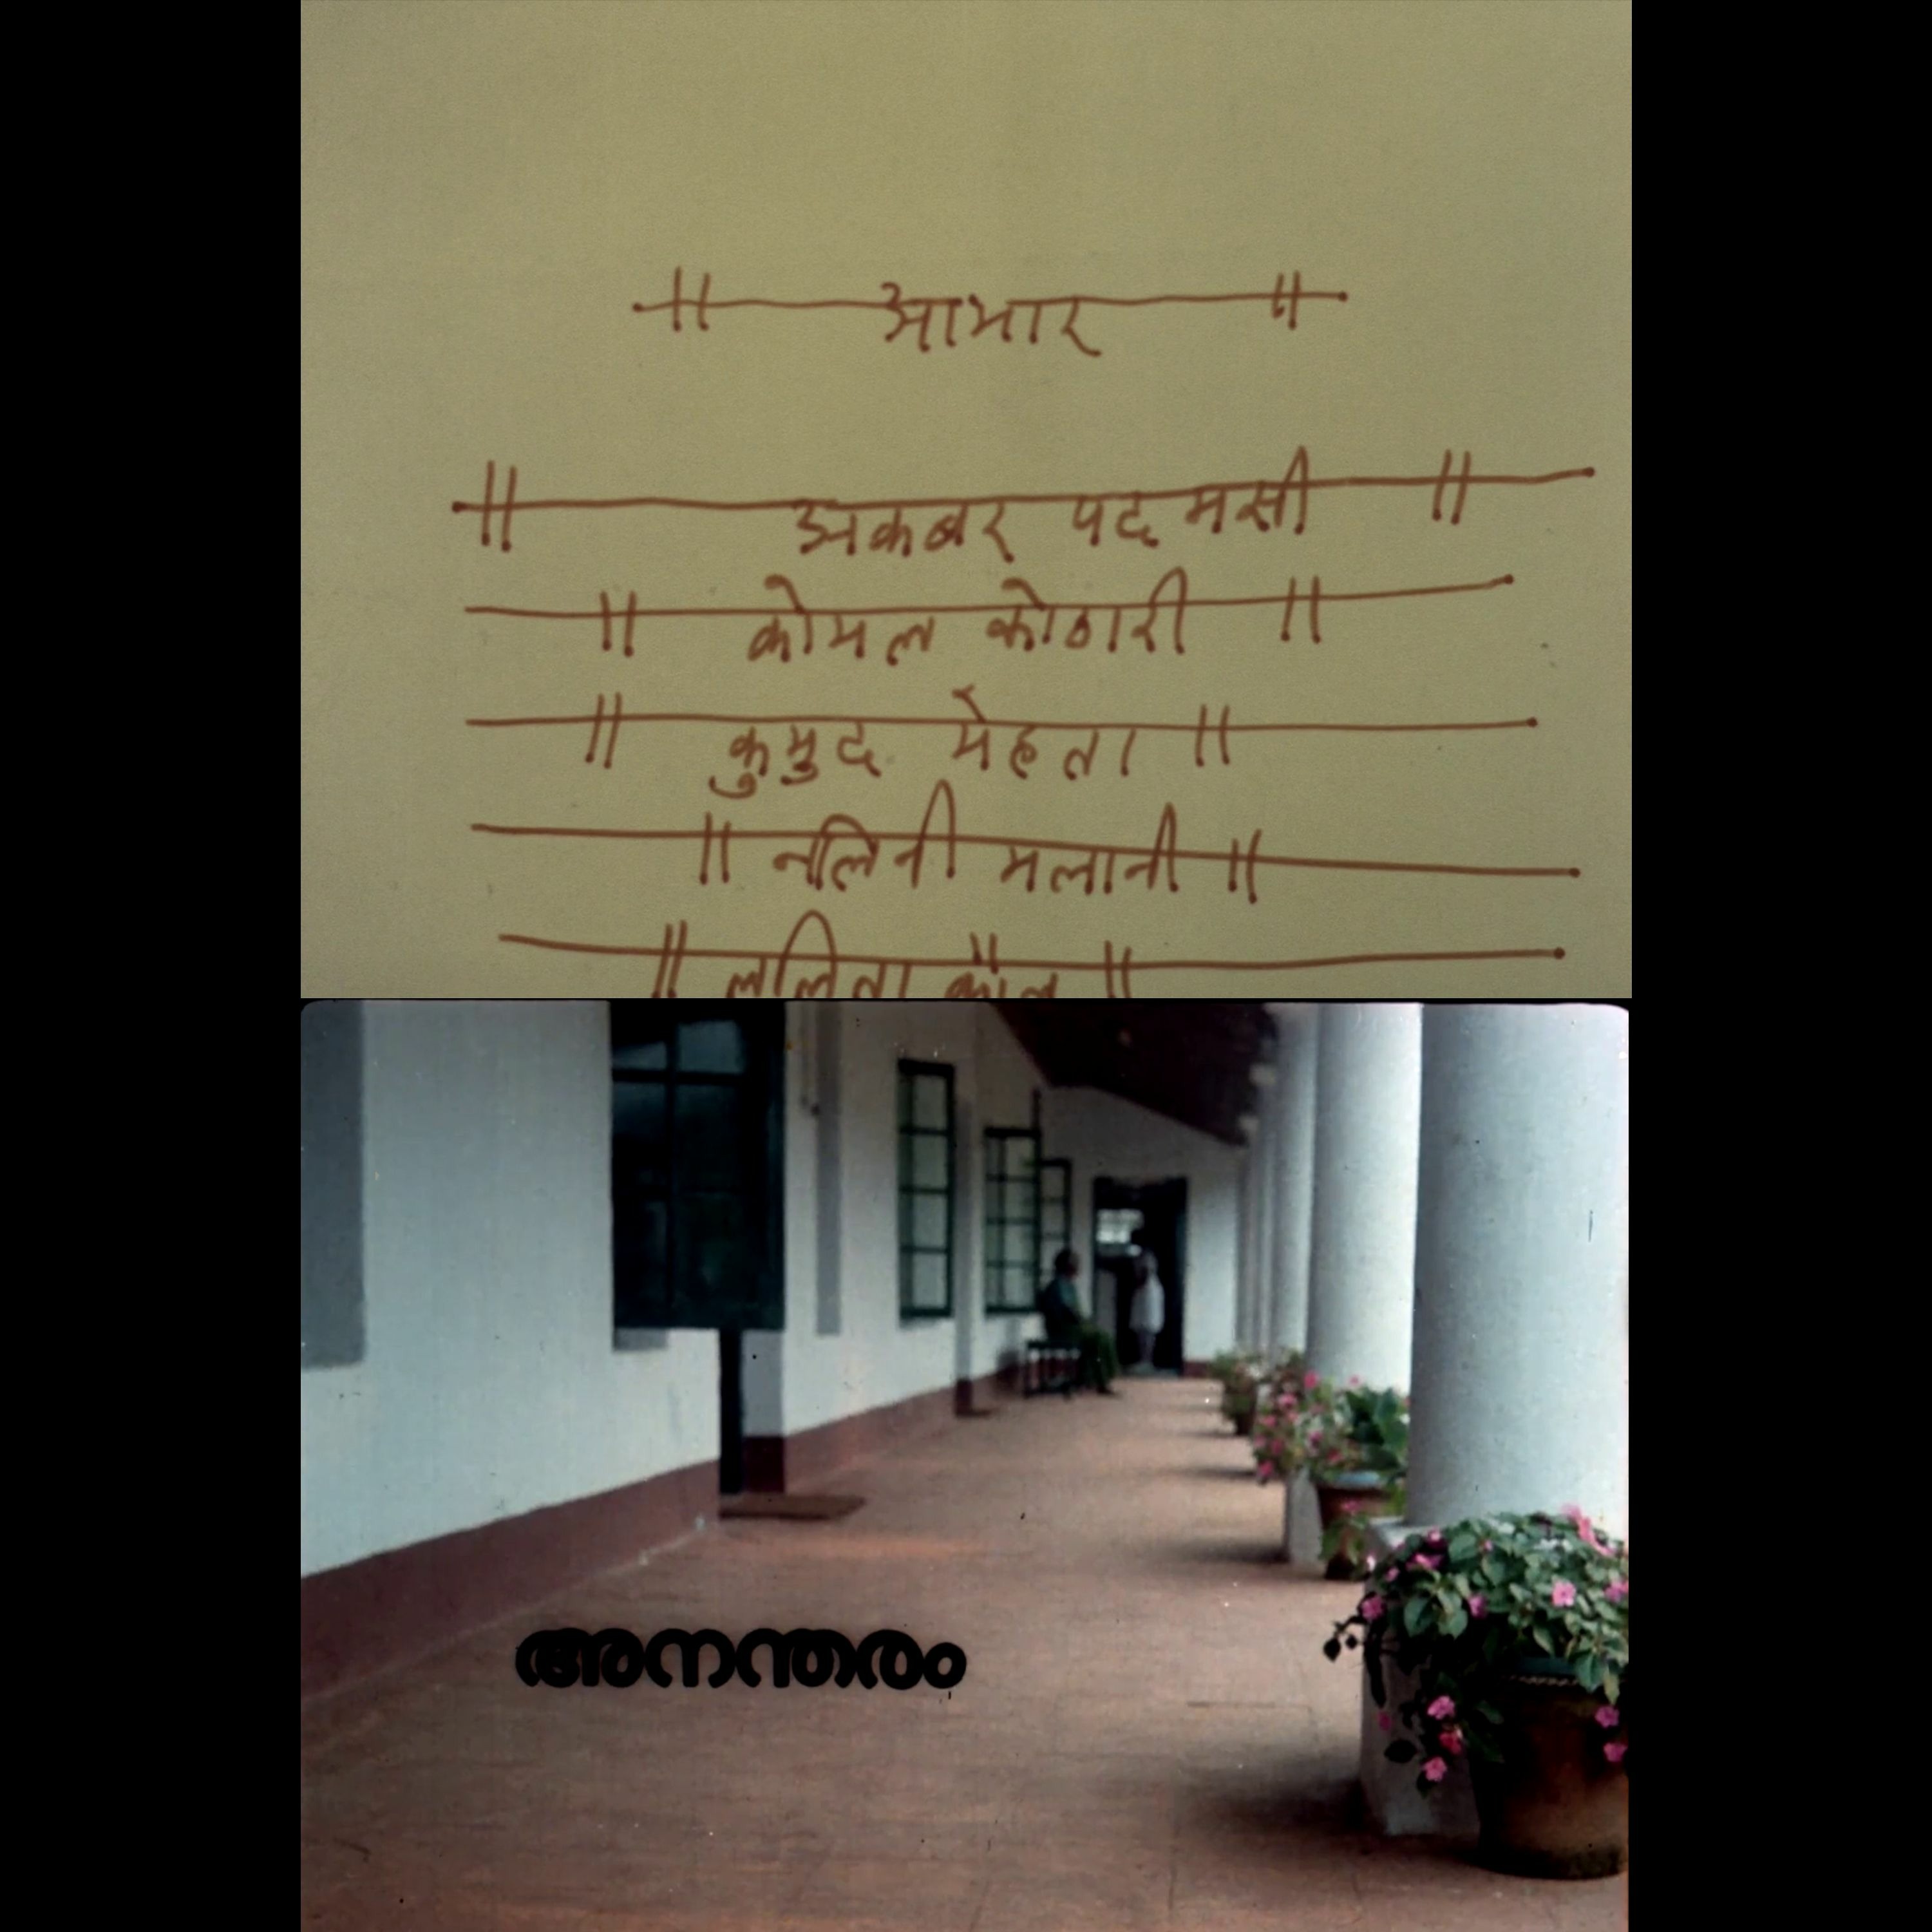 ॥ आभार ॥
॥ अकबर पदमसी ॥
॥ कोमल कोठारी ॥
॥ कुमुद मेहता ॥
॥ नलिनी मलानी ॥
॥ ललिता कौल ॥
അനന്തരം